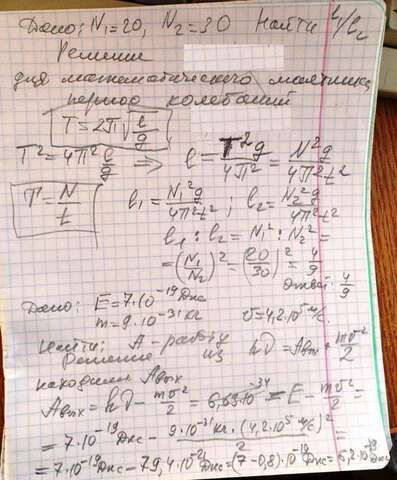 Дано: N₁=20, N₂=30 Найти l₁/l₂
Решение
для математического маятника
период колебаний
T=2π√(l/g)
T²=4π² l/g ⇒ l = T²g/4π² = N²g/4π²t²
T=N/t l₁=N₁²g/4π²t²; l₂=N₂²g/4π²t²
l₁:l₂=N₁²:N₂²=
=(N₁/N₂)²=(20/30)²=4/9
Ответ: 4/9
Дано: E=7·10⁻¹⁹Дж
m=9·10⁻³¹кг v=4,2·10⁵м/с.
Найти: A-работу
Решение из hν=Aвых+mv²/2
находим Aвых
Aвых=hν-mv²/2=6,63·10⁻³⁴=E-mv²/2=
=7·10⁻¹⁹Дж-9·10⁻³¹кг·(4,2·10⁵м/с)²/2=
=7·10⁻¹⁹Дж-79,4·10⁻²¹Дж=(7-0,8)·10⁻¹⁹Дж=6,2·10⁻¹⁹Дж